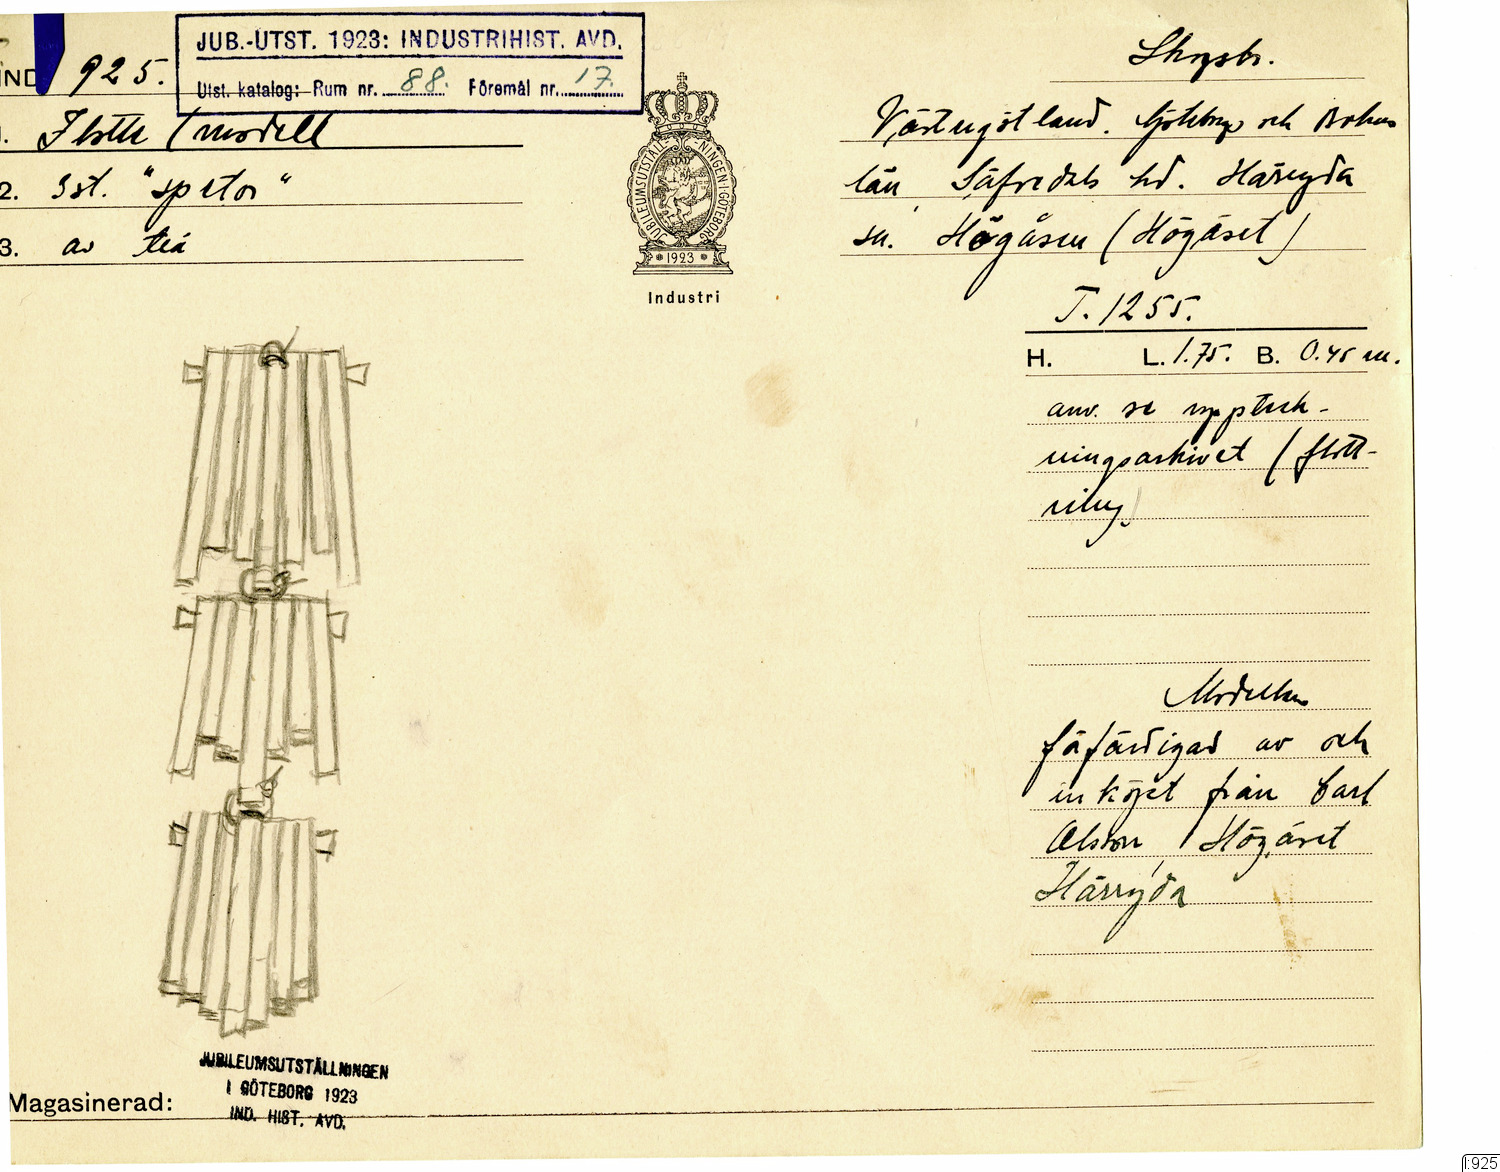 IND 925.
JUB.-UTST. 1923: INDUSTRIHIST. AVD.
Utst. katalog: Rum nr. 88. Föremål nr. 17.
1. Flotte (modell
2. 3 st. "spetor"
3. av trä
JUBILEUMSUTSTÄLLNINGEN I GÖTEBORG
1923
Industri
Skogsbr.
Västergötland. Göteborgs och Bohus
län, Säfvedals hd. Härryda
sn. Högåsen (Högåset)
T. 1255.
H. L. 1.75. B. 0.45 m.
anv. se uppteck-
ningsarkivet (flott-
ning)
Modellen
förfärdigad av och
inköpt från Carl
Olsson, Högåset
Härryda
JUBILEUMSUTSTÄLLNINGEN
I GÖTEBORG 1923
IND. HIST. AVD.
Magasinerad:
I:925